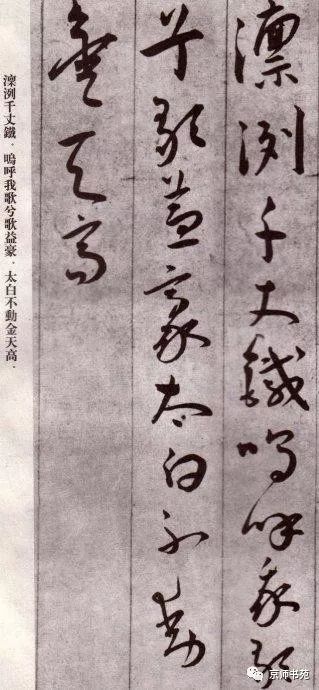 凛冽千丈鐵嗚呼我歌
兮歌益豪太白不動
金天高
凛冽千丈鐵．嗚呼我歌兮歌益豪．太白不動金天高．
京师书苑